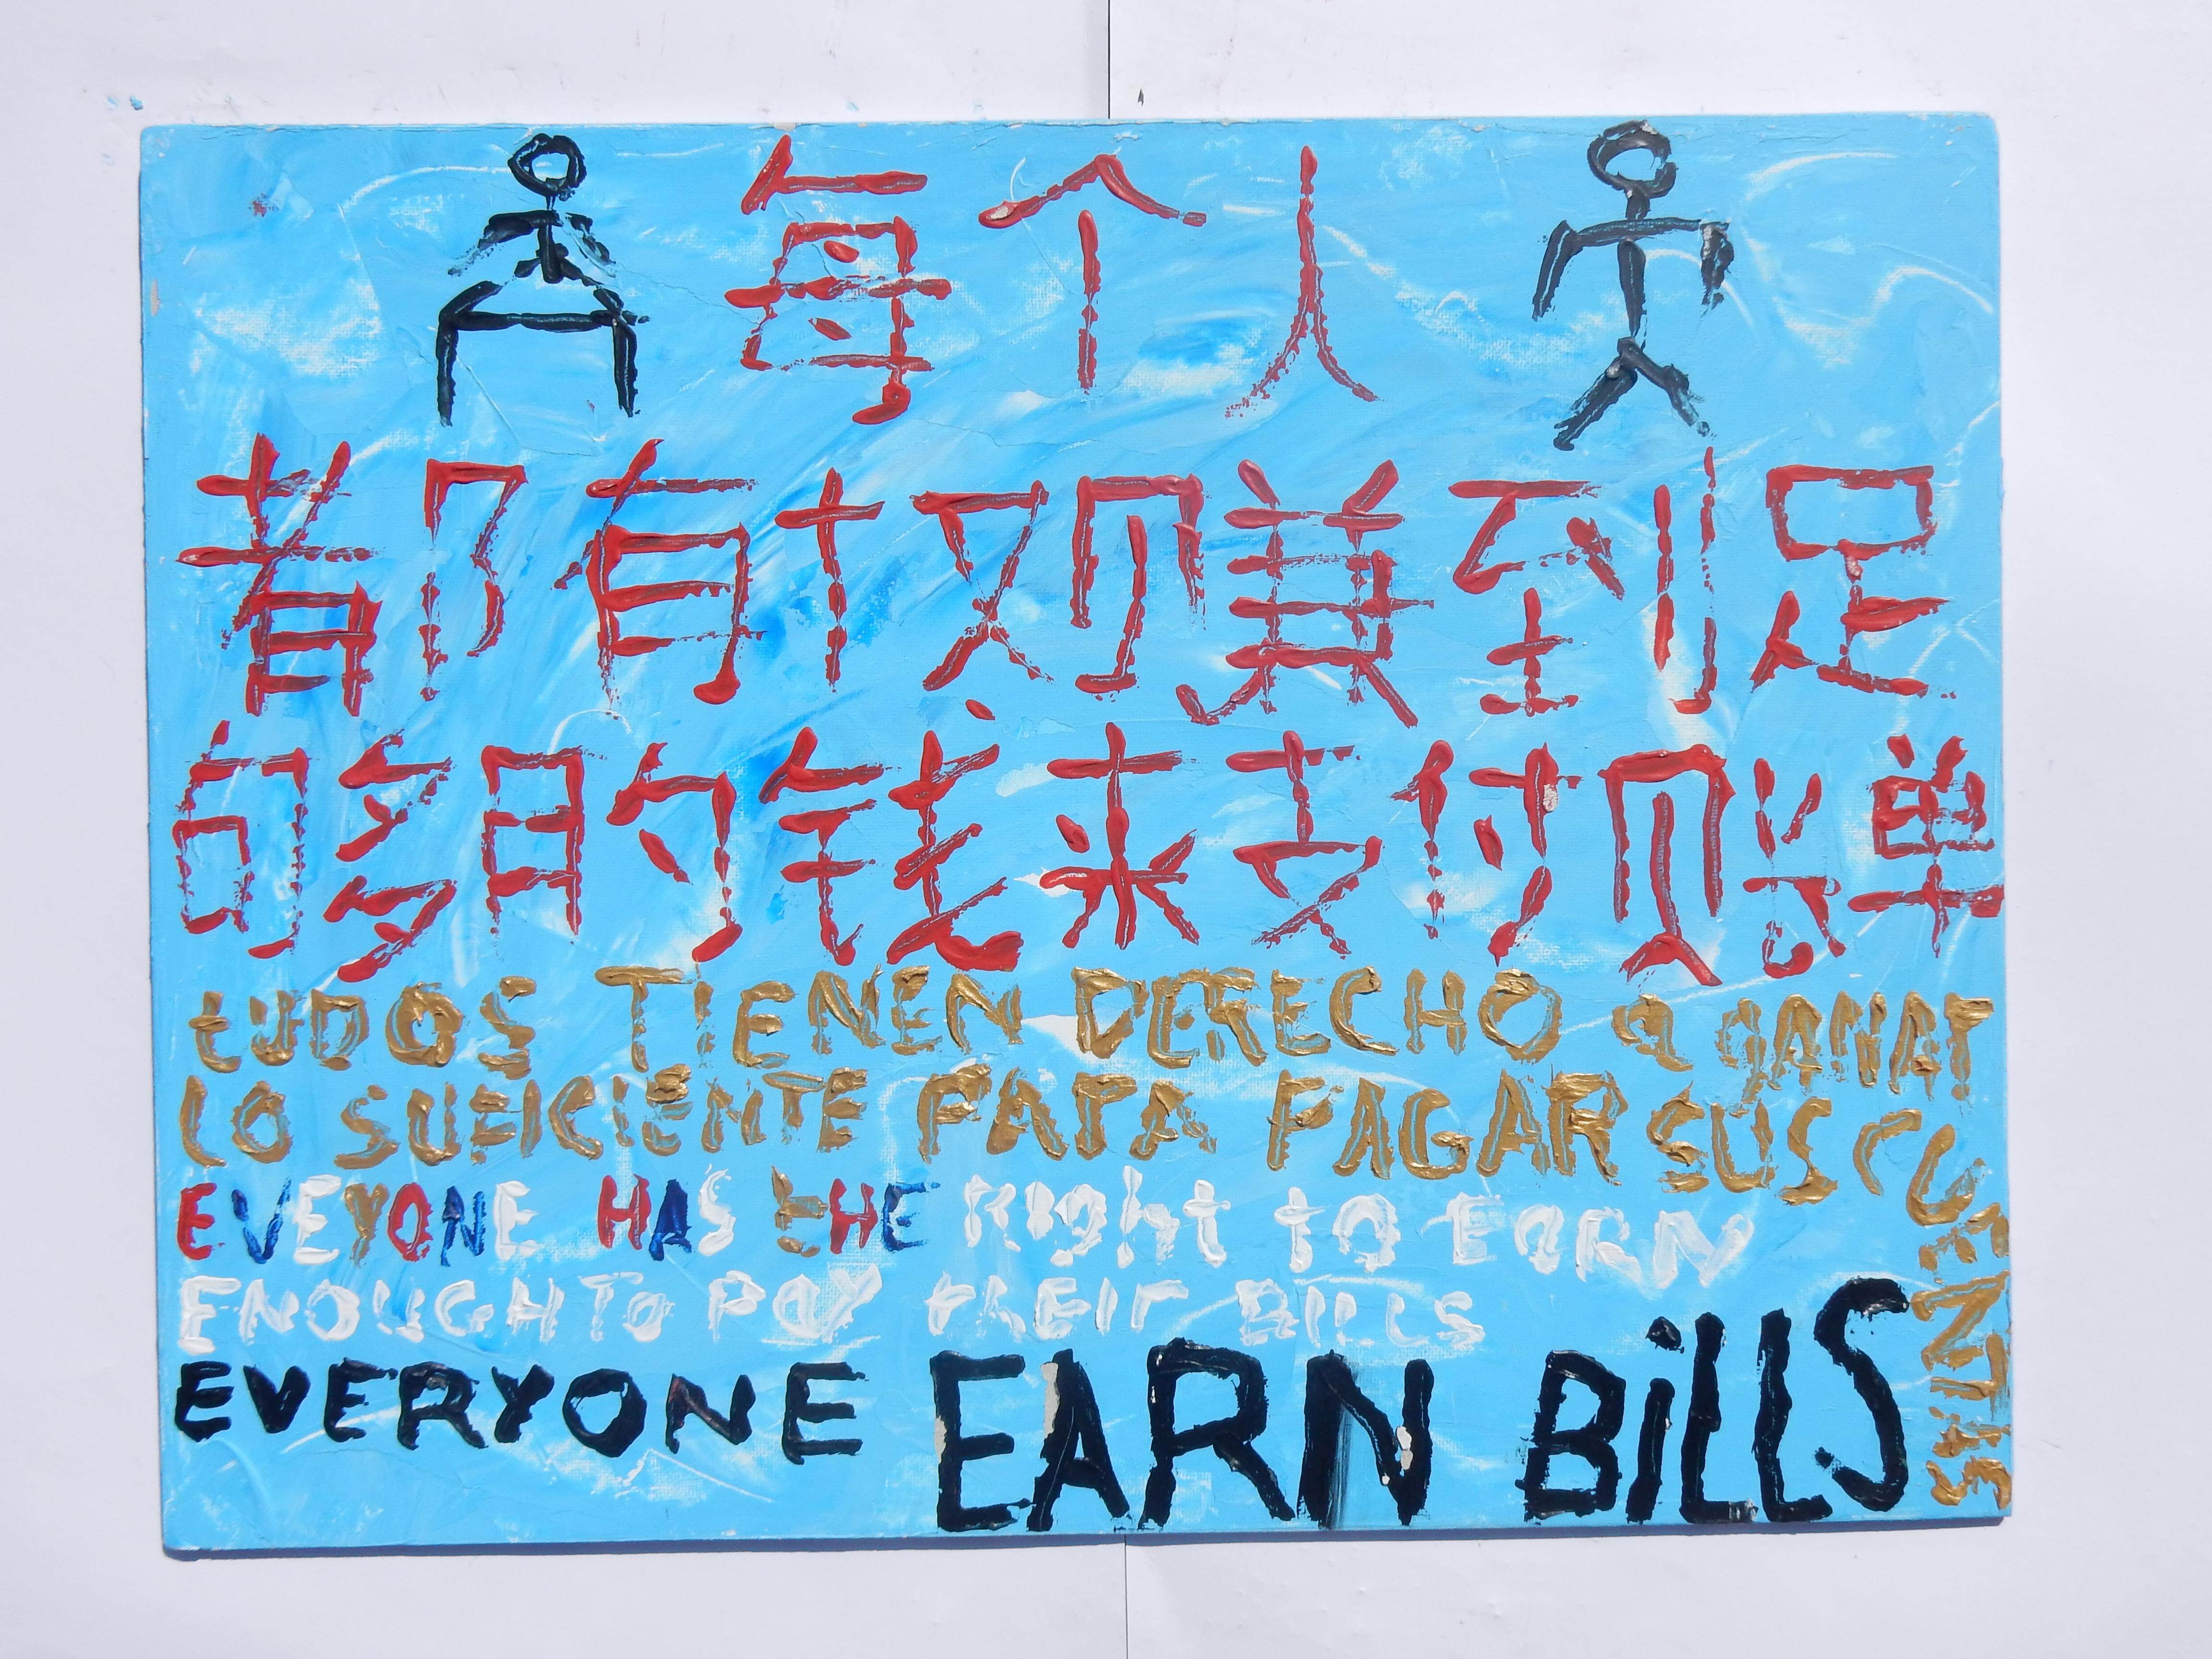 每个人
都有权赚到足
够的钱来支付账单
tUDOS TIENEN DERECHO a GANAR
LO SUFICIENTE PARA PAGAR SUS CUENTAS
EVEYONE HAS tHE RIght to EARN
ENOUGH To PAY thEIr BILLS
EVERYONE EARN BiLLS